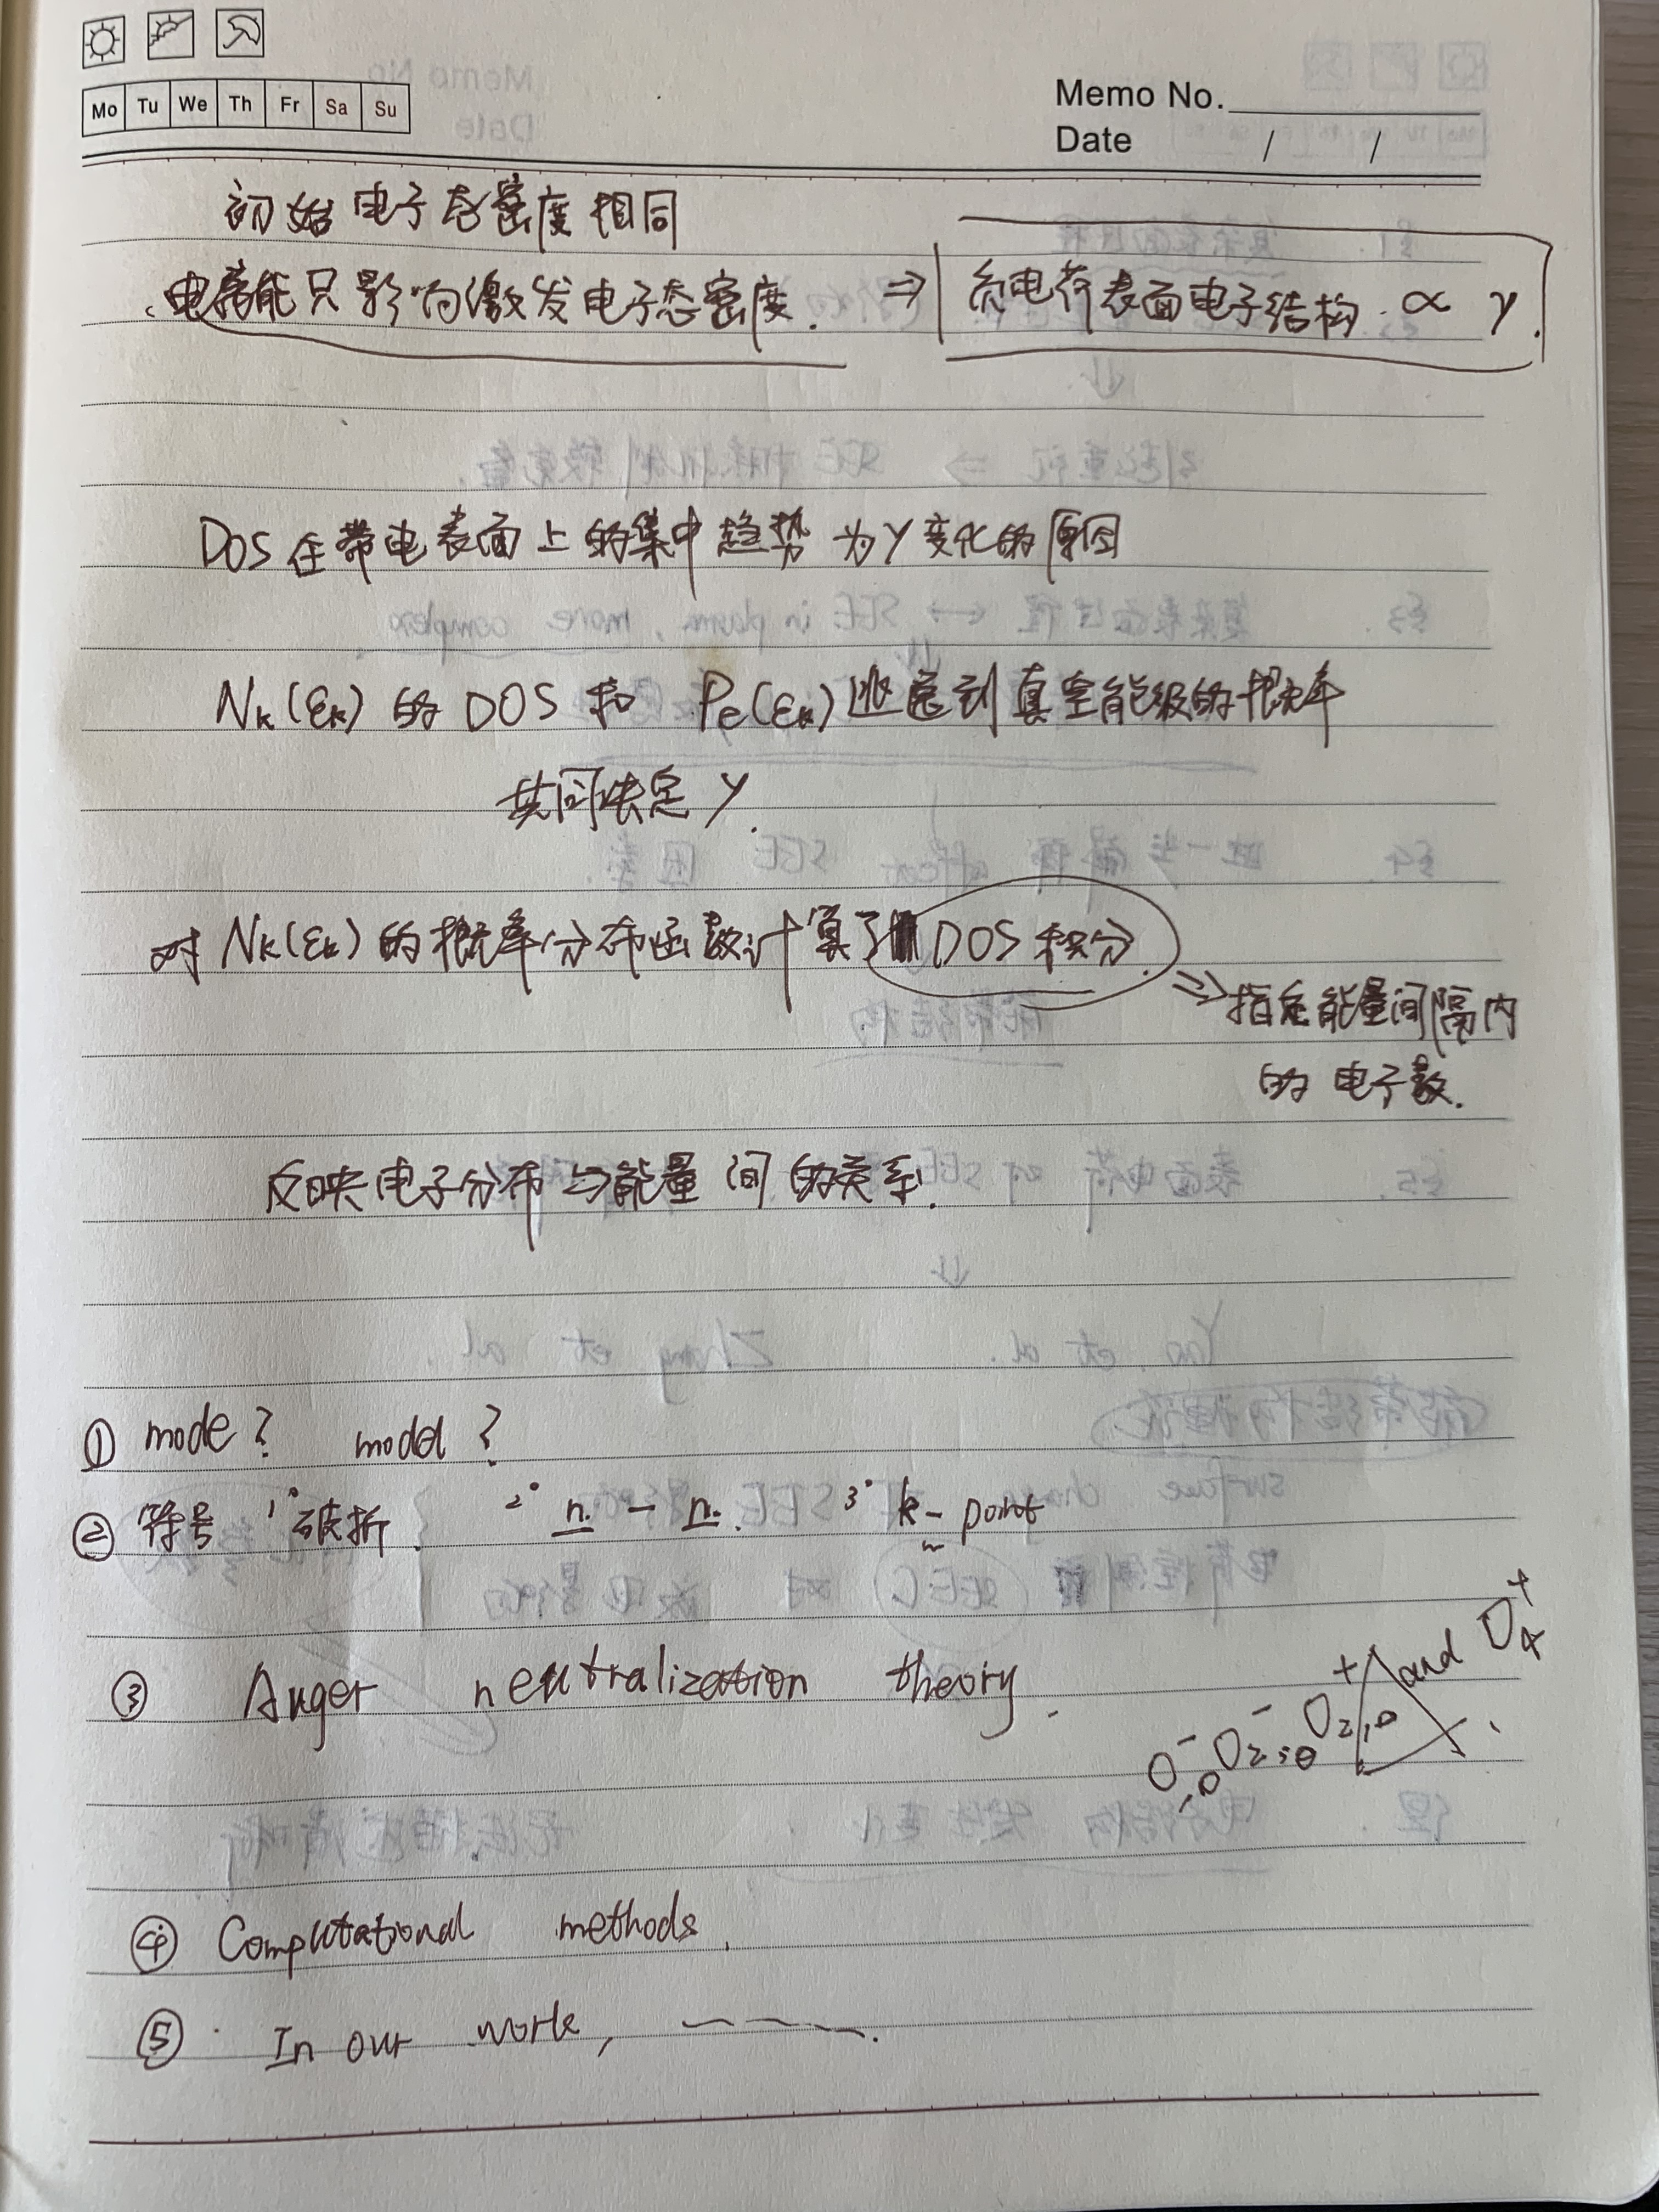 Mo Tu We Th Fr Sa Su
Memo No.
Date / /
初始电子态密度相同
电离能只影响激发电子态密度. ⇒ 带电荷表面电子结构 ∝ γ.
DOS在带电表面上的集中趋势 为γ变化的原因
Nk(εk) 的 DOS 和 Pe(εk) 逃逸到真空能级的概率
共同决定 γ.
对 Nk(εk) 的概率分布函数计算了 DOS 积分.
⇒ 指定能量间隔内
的 电子数.
反映电子分布与能量间的关系.
① mode? model?
② 符号 1° 破折. 2° n. – n. 3° k- point
③ Auger neutralization theory.
O⁻, O₂⁻, O₂⁺, and O₄⁺
④ Computational methods.
⑤ In our work, ———.